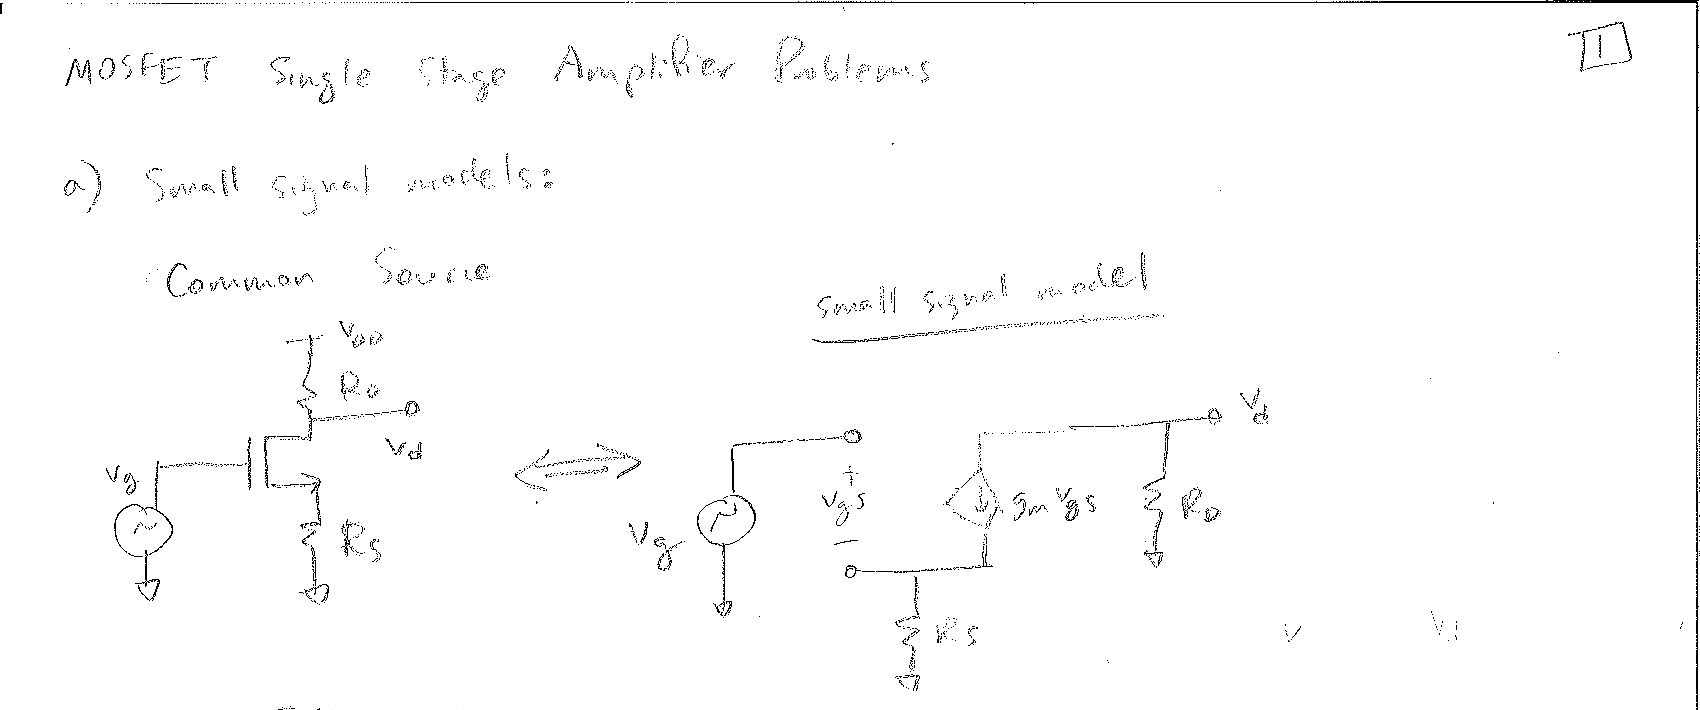 MOSFET Single Stage Amplifier Problems
1
a) Small signal models:
Common Source
small signal model
VDD
RD
vd
vg
RS
vg
+
vgs
−
gm vgs
vd
RD
RS